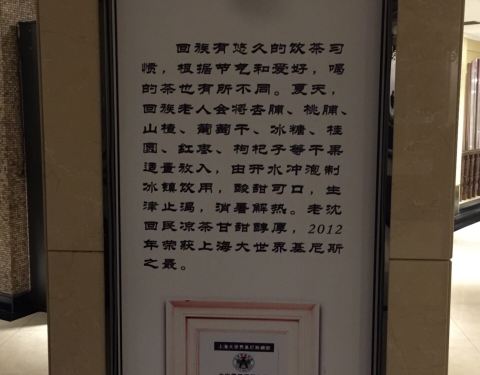 回族有悠久的饮茶习
惯，根据节气和爱好，喝
的茶也有所不同。夏天，
回族老人会将杏脯、桃脯、
山楂、葡萄干、冰糖、桂
圆、红枣、枸杞子等干果
适量放入，由开水冲泡制
冰镇饮用，酸甜可口，生
津止渴，消暑解热。老沈
回民凉茶甘甜醇厚，2012
年荣获上海大世界基尼斯
之最。
上海大世界基尼斯总部